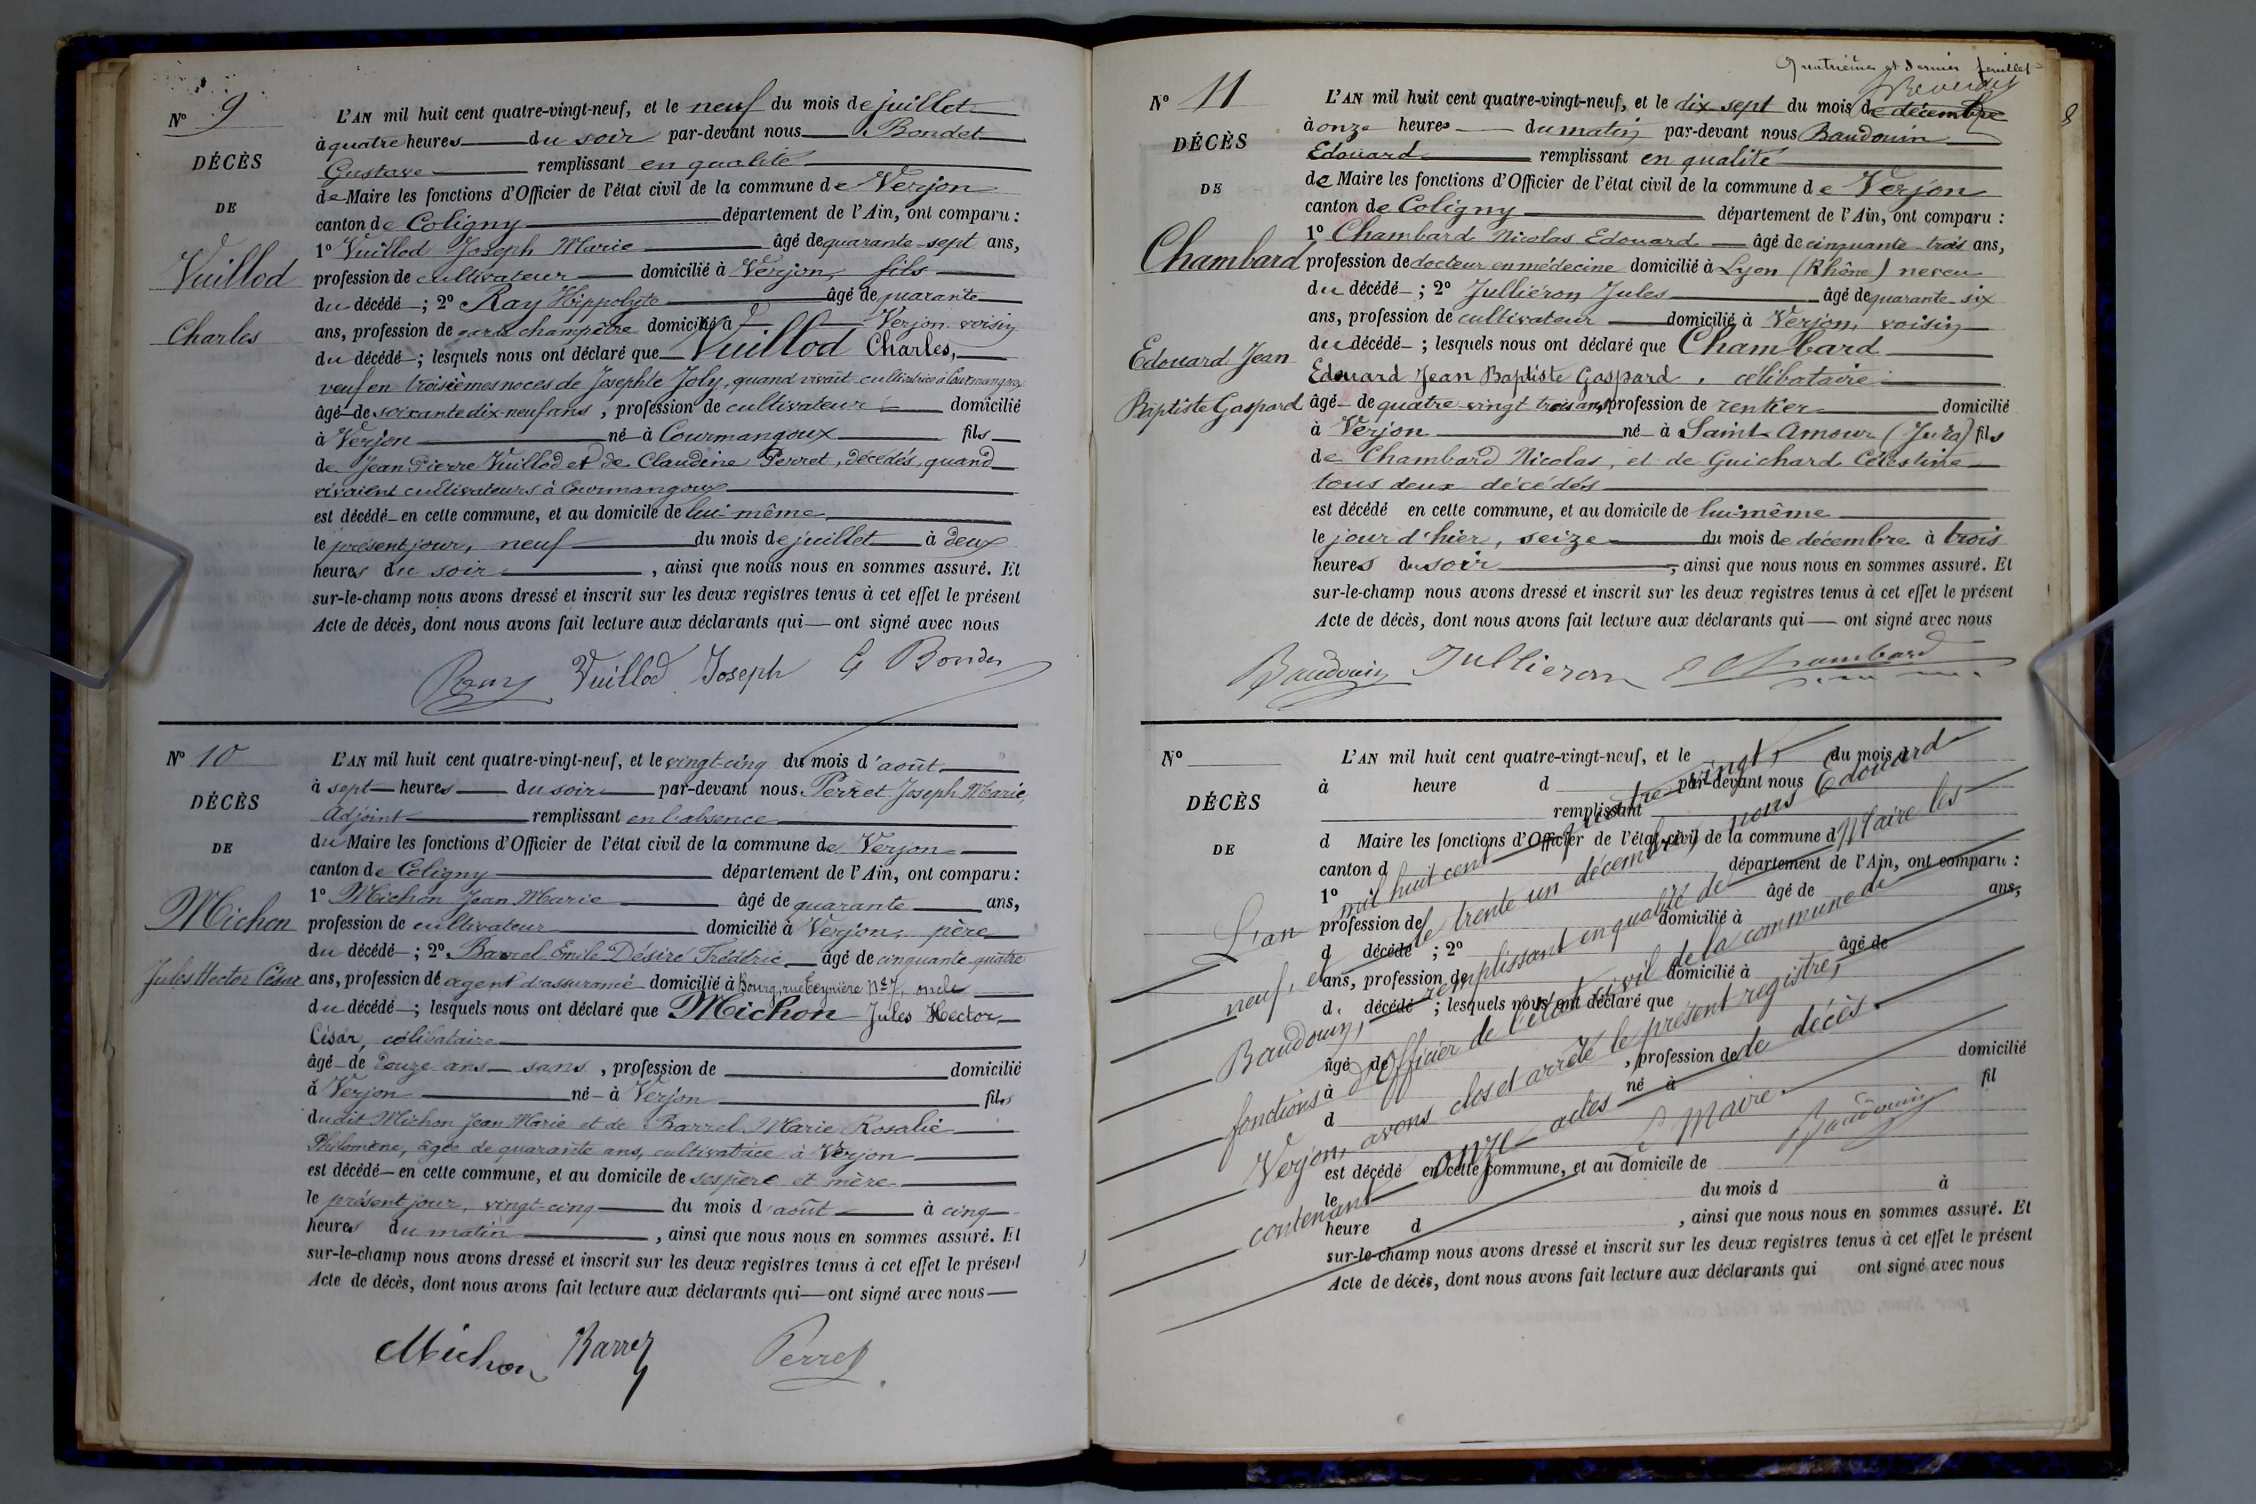 N° 9
DÉCÈS
DE
Vuillod
Charles
L'AN mil huit cent quatre-vingt-neuf, et le neuf du mois de juillet
à quatre heures du soir par-devant nous Bondet
Gustave remplissant en qualité
de Maire les fonctions d'Officier de l'état civil de la commune de Verjon
canton de Coligny département de l'Ain, ont comparu :
1° Vuillod Joseph Marie âgé de quarante-sept ans,
profession de cultivateur domicilié à Verjon, fils
du décédé ; 2° Ray Hippolyte âgé de quarante
ans, profession de garde champêtre domicilié à Verjon voisin
du décédé ; lesquels nous ont déclaré que Vuillod Charles,
veuf en troisièmes noces de Josephte Joly, quand vivait cultivatrice à Courmangoux
âgé de soixante dix-neuf ans, profession de cultivateur domicilié
à Verjon né à Courmangoux fils
de Jean Pierre Vuillod et de Claudine Perret, décédés, quand
vivaient cultivateurs à Courmangoux
est décédé en cette commune, et au domicile de lui-même
le présent jour, neuf du mois de juillet à deux
heures du soir, ainsi que nous nous en sommes assuré. Et
sur-le-champ nous avons dressé et inscrit sur les deux registres tenus à cet effet le présent
Acte de décès, dont nous avons fait lecture aux déclarants qui ont signé avec nous
Ray Vuillod Joseph G Bondet
N° 10
DÉCÈS
DE
Michon
Jules Hector César
L'AN mil huit cent quatre-vingt-neuf, et le vingt-cinq du mois d'août
à sept heures du soir par-devant nous Perret Joseph Marie,
Adjoint remplissant en l'absence
du Maire les fonctions d'Officier de l'état civil de la commune de Verjon
canton de Coligny département de l'Ain, ont comparu :
1° Michon Jean Marie âgé de quarante ans,
profession de cultivateur domicilié à Verjon, père
du décédé ; 2° Barrel Emile Désiré Frédéric âgé de cinquante-quatre
ans, profession de agent d'assurance domicilié à Bourg, rue Teynière N° 7, oncle
du décédé ; lesquels nous ont déclaré que Michon Jules Hector
César, célibataire
âgé de douze ans sans, profession de domicilié
à Verjon né à Verjon fils
dudit Michon Jean Marie et de Barrel Marie Rosalie
Philomène, âgée de quarante ans, cultivatrice à Verjon
est décédé en cette commune, et au domicile de ses père et mère
le présent jour, vingt-cinq du mois d'août à cinq
heures du matin, ainsi que nous nous en sommes assuré. Et
sur-le-champ nous avons dressé et inscrit sur les deux registres tenus à cet effet le présent
Acte de décès, dont nous avons fait lecture aux déclarants qui ont signé avec nous
Michon Barrel Perret
Quatrième et dernier feuillet
8
N° 11
DÉCÈS
DE
Chambard
Edouard Jean
Baptiste Gaspard
L'AN mil huit cent quatre-vingt-neuf, et le dix sept du mois de décembre
à onze heures du matin par-devant nous Baudouin
Edouard remplissant en qualité
de Maire les fonctions d'Officier de l'état civil de la commune de Verjon
canton de Coligny département de l'Ain, ont comparu :
1° Chambard Nicolas Edouard âgé de cinquante-trois ans,
profession de docteur en médecine domicilié à Lyon (Rhône) neveu
du décédé ; 2° Jullieron Jules âgé de quarante-six
ans, profession de cultivateur domicilié à Verjon, voisin
du décédé ; lesquels nous ont déclaré que Chambard
Edouard Jean Baptiste Gaspard, célibataire
âgé de quatre vingt trois ans, profession de rentier domicilié
à Verjon né à Saint-Amour (Jura) fils
de Chambard Nicolas, et de Guichard Célestine
tous deux décédés
est décédé en cette commune, et au domicile de lui-même
le jour d'hier, seize du mois de décembre à trois
heures du soir, ainsi que nous nous en sommes assuré. Et
sur-le-champ nous avons dressé et inscrit sur les deux registres tenus à cet effet le présent
Acte de décès, dont nous avons fait lecture aux déclarants qui ont signé avec nous
Baudouin Jullieron E Chambard
N°
DÉCÈS
DE
L'AN mil huit cent quatre-vingt-neuf, et le du mois d
à heure d par-devant nous
remplissant
d Maire les fonctions d'Officier de l'état civil de la commune d
canton d département de l'Ain, ont comparu :
1° âgé de ans,
profession de domicilié à
d décédé ; 2° âgé de
ans, profession de domicilié à
d décédé ; lesquels nous ont déclaré que
âgé de , profession de domicilié
à né à fil
d
est décédé en cette commune, et au domicile de
le du mois d à
heure d , ainsi que nous nous en sommes assuré. Et
sur-le-champ nous avons dressé et inscrit sur les deux registres tenus à cet effet le présent
Acte de décès, dont nous avons fait lecture aux déclarants qui ont signé avec nous
L'an mil huit cent quatre-vingt-
neuf, et le trente un décembre, nous Edouard
Baudouin, remplissant en qualité de Maire les
fonctions d'Officier de l'état civil de la commune de
Verjon, avons clos et arrêté le présent registre,
contenant onze actes de décès
Le Maire
Baudouin